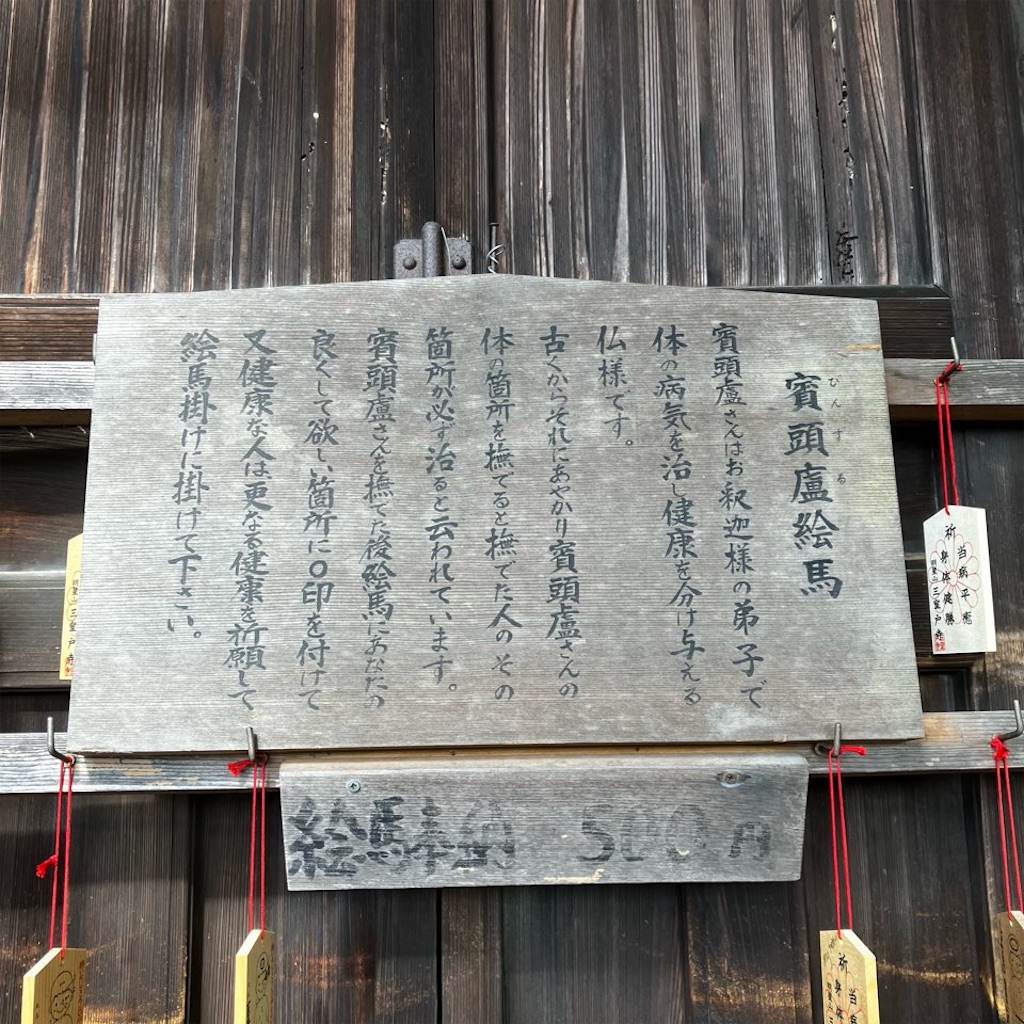 賓頭盧絵馬
びんずる
賓頭盧さんはお釈迦様の弟子で
体の病気を治し健康を分け与える
仏様です。
古くからそれにあやかり賓頭盧さんの
体の箇所を撫でると撫でた人のその
箇所が必ず治ると云われています。
賓頭盧さんを撫でた後絵馬にあなたの
良くして欲しい箇所に〇印を付けて
又健康な人は更なる健康を祈願して
絵馬掛けに掛けて下さい。
絵馬奉納 500円
当病平癒
祈 身体健勝
明星山三室戸寺
明星山三室戸寺
祈身体
当病